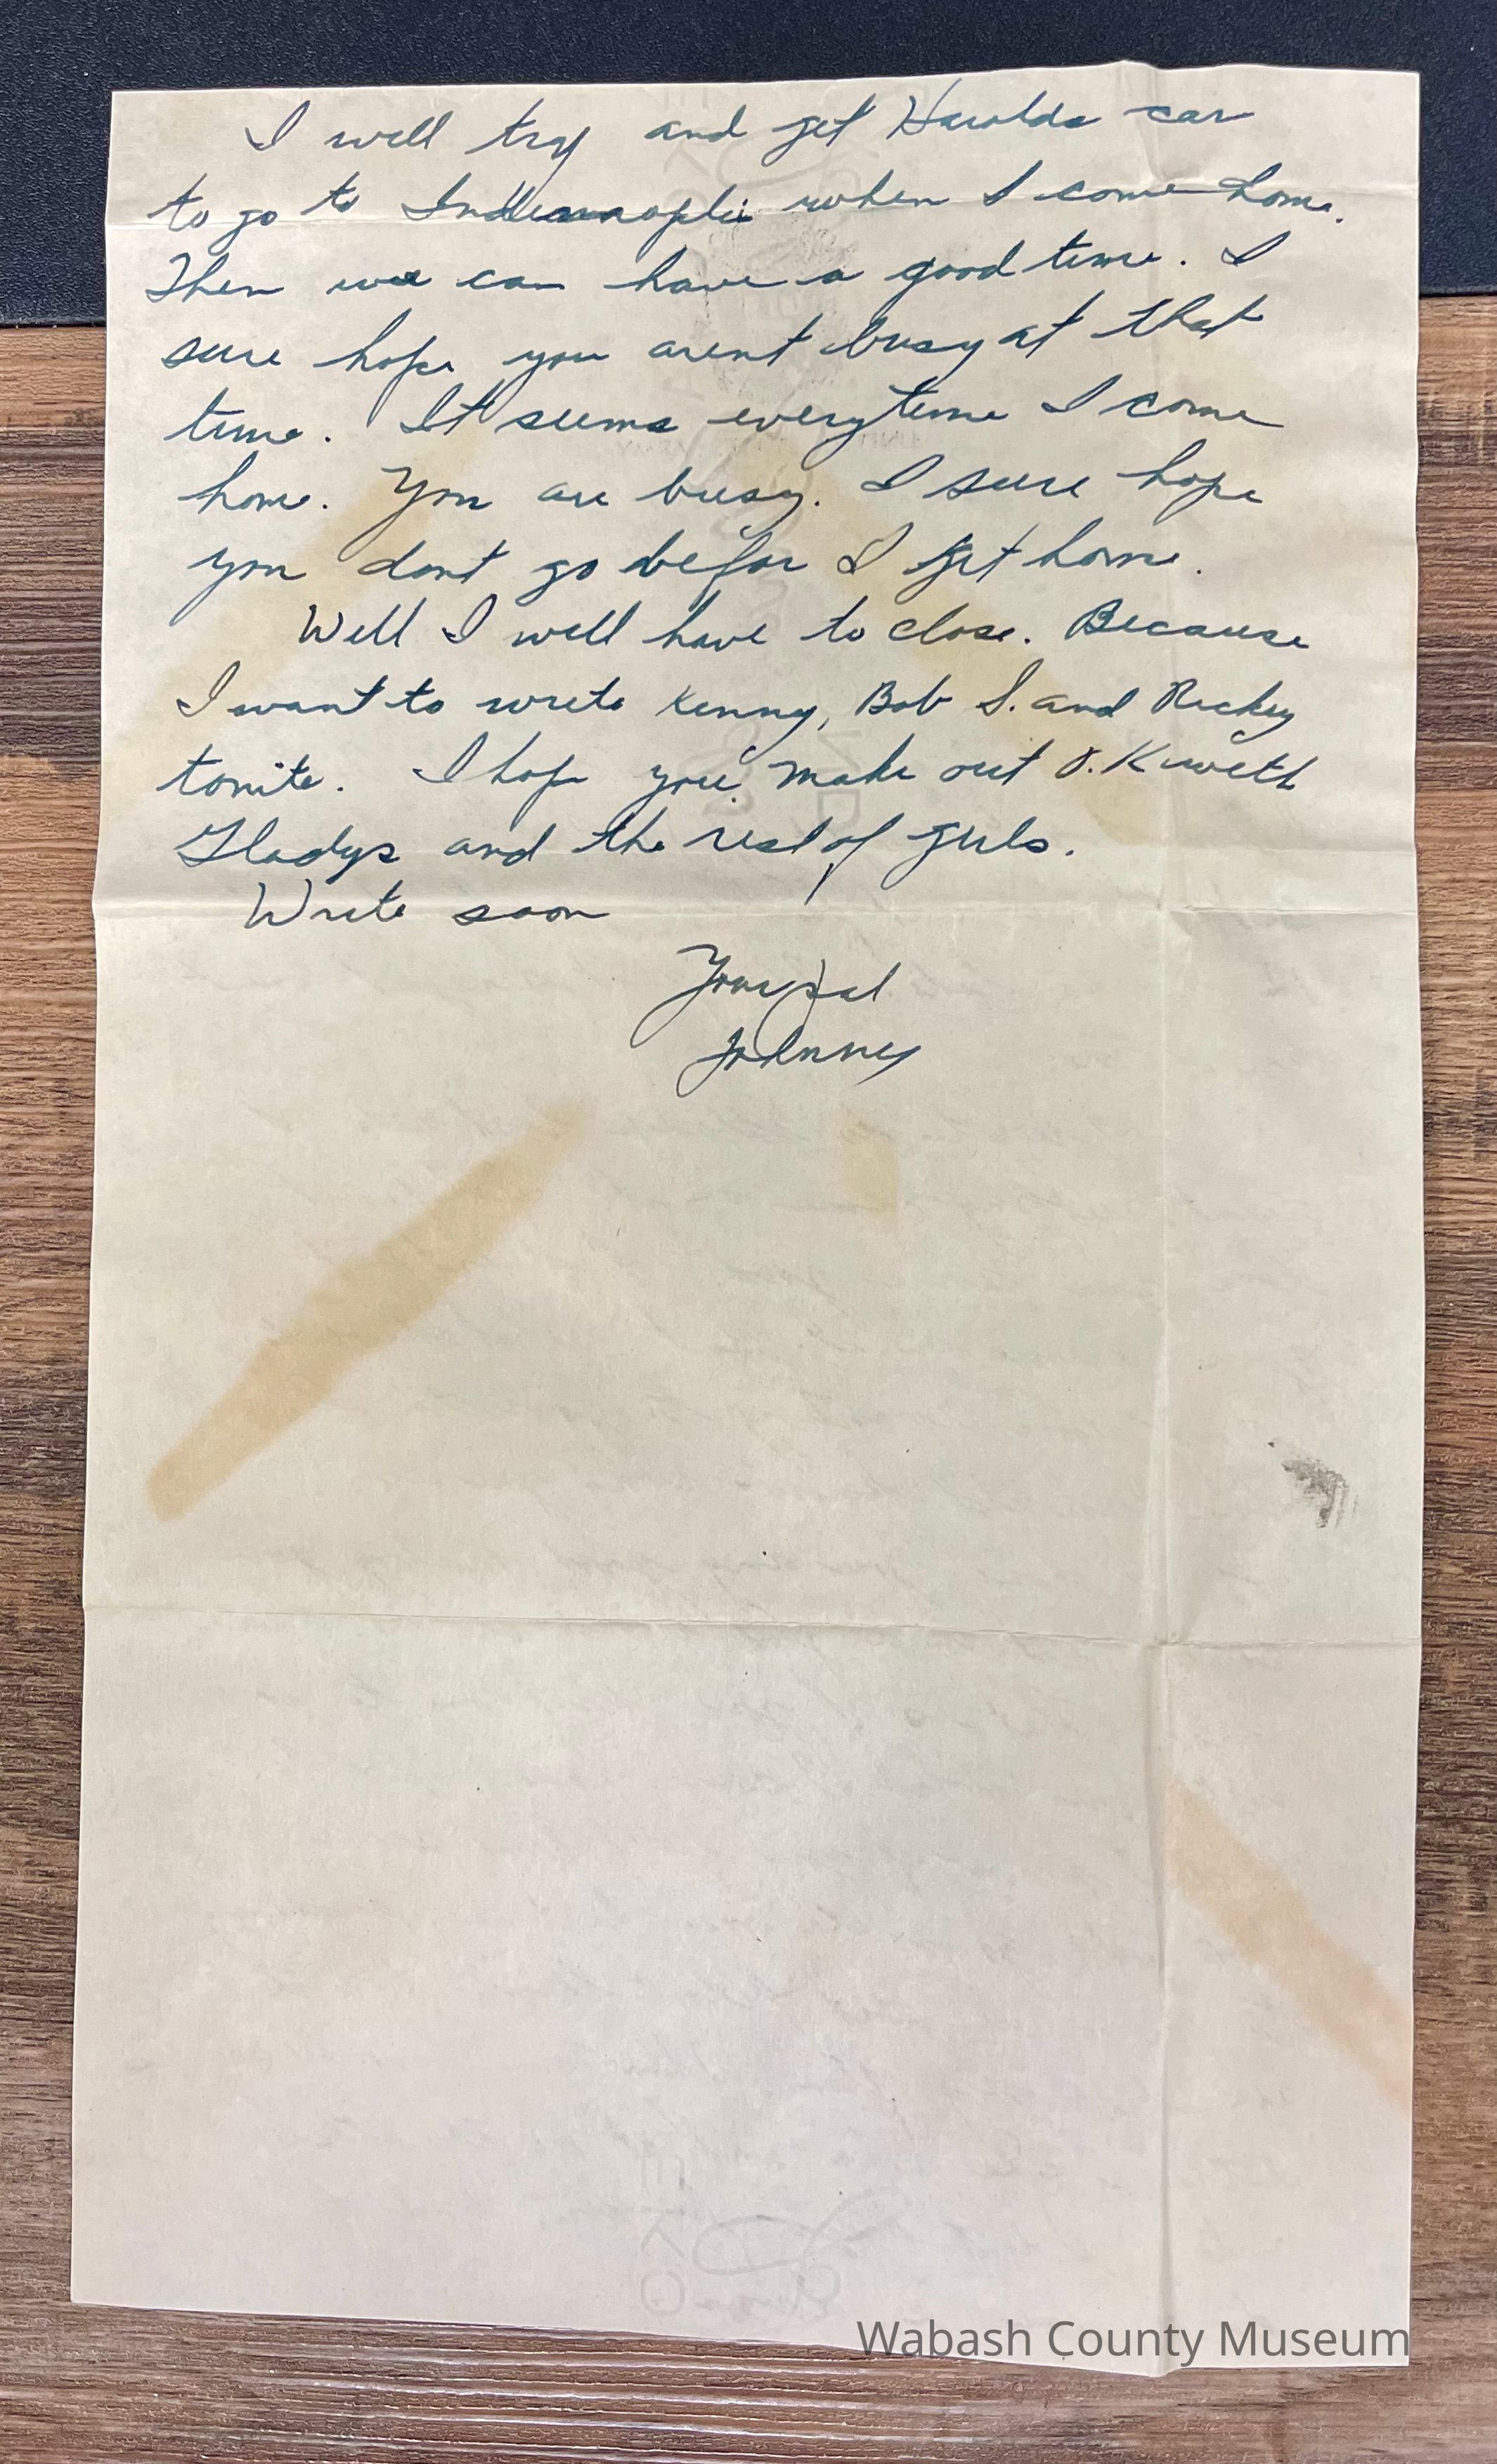 I will try and get Harolds car
to go to Indianaoplis when I come home.
Then we can have a good time. I
sure hope you arent busy at that
time. It seems everytime I come
home. You are busy. I sure hope
you dont go befor I get home.
Well I will have to close. Because
I want to write Kenny, Bob S. and Rickey
tonite. I hope you make out O.K with
Gladys and the rest of girls.
Write soon
Your pal
Johnney
Wabash County Museum